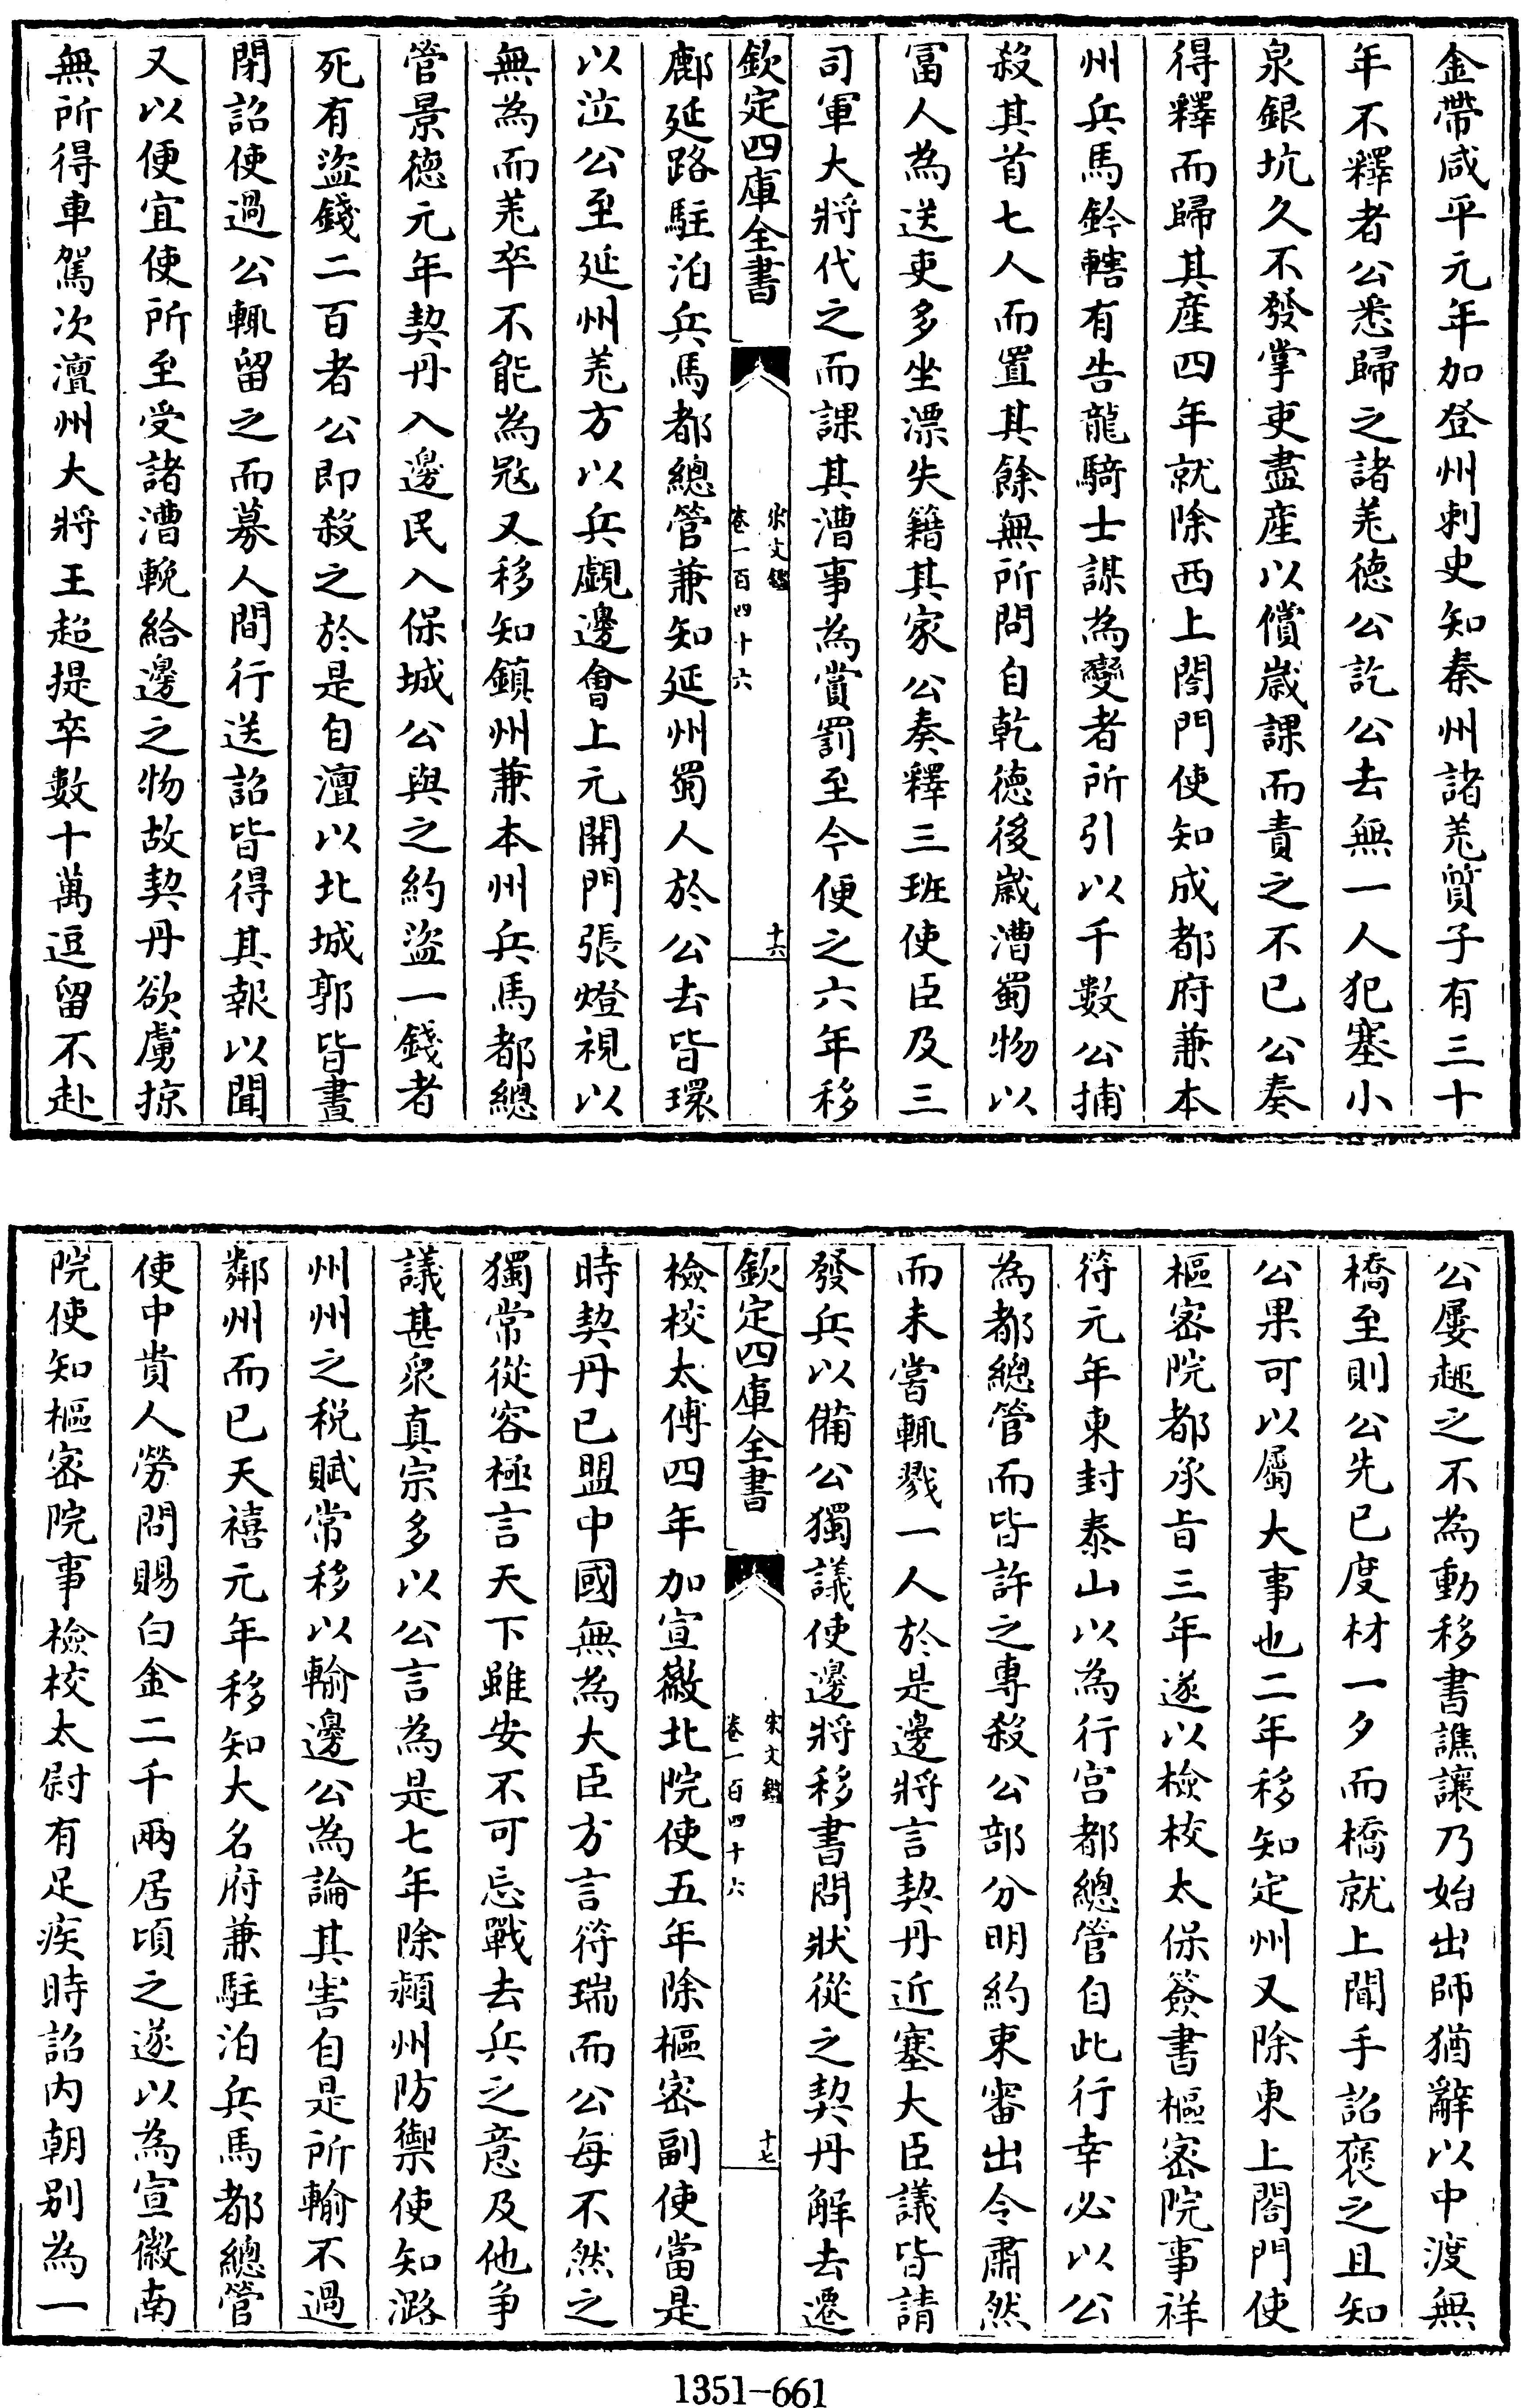 金帶咸平元年加登州刺史知秦州諸羗質子有三十
年不釋者公悉歸之諸羗德公訖公去無一人犯塞小
泉銀坑久不發掌吏盡産以償歳課而責之不已公奏
得釋而歸其産四年就除西上閤門使知成都府兼本
州兵馬鈐轄有告龍騎士謀為變者所引以千數公捕
殺其首七人而置其餘無所問自乾德後歳漕蜀物以
冨人為送吏多坐漂失籍其家公奏釋三班使臣及三
司軍大將代之而課其漕事為賞罰至今便之六年移
欽定四庫全書
宋文鑑
卷一百四十六
十六
鄜延路駐泊兵馬都總管兼知延州蜀人於公去皆環
以泣公至延州羗方以兵覰邊會上元開門張燈視以
無為而羗卒不能為宼又移知鎮州兼本州兵馬都總
管景德元年契丹入邊民入保城公與之約盜一錢者
死有盜錢二百者公即殺之於是自澶以北城郭皆晝
閉詔使過公輒留之而募人間行送詔皆得其報以聞
又以便宜使所至受諸漕輓給邊之物故契丹欲虜掠
無所得車駕次澶州大將王超提卒數十萬逗留不赴
公屢趣之不為動移書譙讓乃始出師猶辭以中渡無
橋至則公先已度材一夕而橋就上聞手詔褒之且知
公果可以屬大事也二年移知定州又除東上閤門使
樞宻院都承旨三年遂以檢校太保簽書樞宻院事祥
符元年東封泰山以為行宫都總管自此行幸必以公
為都總管而皆許之專殺公部分明約束審出令肅然
而未嘗輒戮一人於是邊將言契丹近塞大臣議皆請
發兵以備公獨議使邊將移書問狀從之契丹解去遷
欽定四庫全書
宋文鑑
卷一百四十六
十七
檢校太傅四年加宣徽北院使五年除樞宻副使當是
時契丹已盟中國無為大臣方言符瑞而公每不然之
獨常從容極言天下雖安不可忘戰去兵之意及他争
議甚衆真宗多以公言為是七年除潁州防禦使知潞
州州之税賦常移以輸邊公為論其害自是所輸不過
鄰州而已天禧元年移知大名府兼駐泊兵馬都總管
使中貴人勞問賜白金二千兩居頃之遂以為宣徽南
院使知樞宻院事檢校太尉有足疾時詔内朝别為一
1351-661